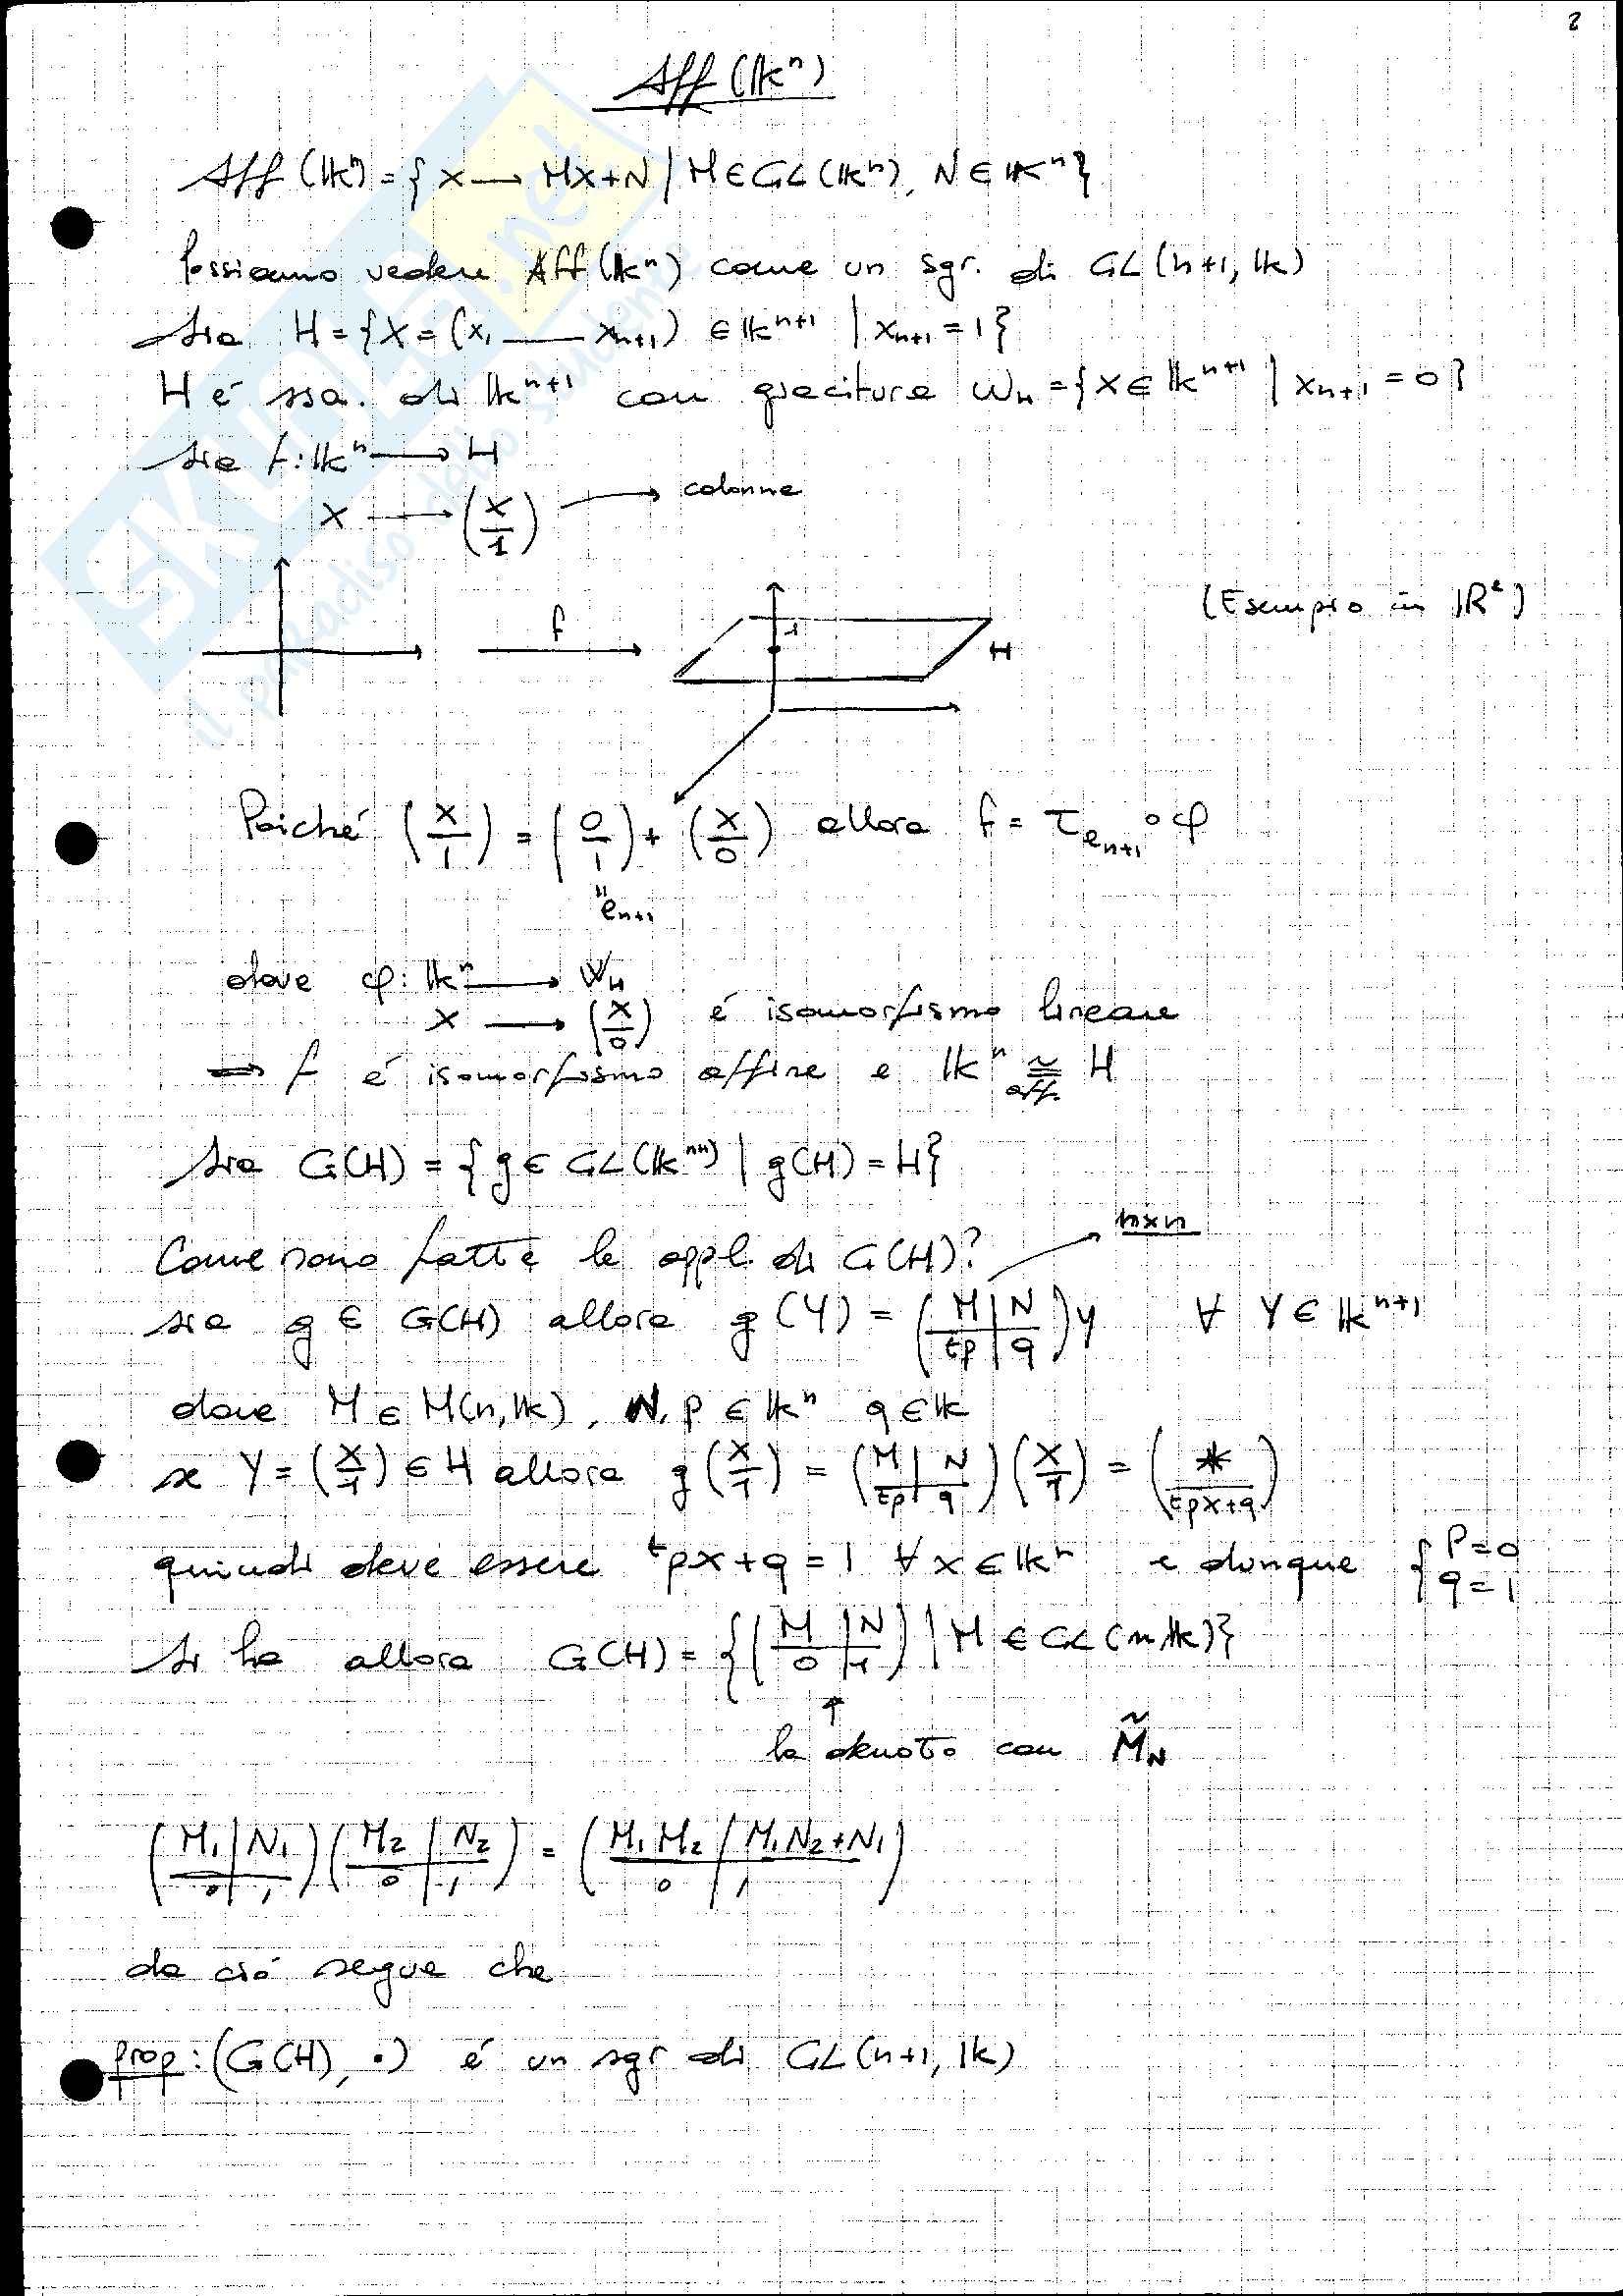 2
Aff(𝕂ⁿ)
Aff(𝕂ⁿ) = {X → MX+N / M ∈ GL(𝕂ⁿ), N ∈ 𝕂ⁿ}
Possiamo vedere Aff(𝕂ⁿ) come un sgr. di GL(n+1, 𝕂)
sia H = {X = (x₁ — xₙ₊₁) ∈ 𝕂ⁿ⁺¹ | xₙ₊₁ = 1}
H é ssa. di 𝕂ⁿ⁺¹ con giacitura W_H = {X ∈ 𝕂ⁿ⁺¹ | xₙ₊₁ = 0}
sia f: 𝕂ⁿ → H
X → (X/1) → colonna
(Esempio in ℝ²)
f
1
H
Poiché (X/1) = (0/1) + (X/0) allora f = τ_eₙ₊₁ ∘ φ
" eₙ₊₁
dove φ: 𝕂ⁿ → W_H
X → (X/0) é isomorfismo lineare
⇒ f é isomorfismo affine e 𝕂ⁿ ≅ aff. H
sia G(H) = {g ∈ GL(𝕂ⁿ⁺¹) | g(H) = H}
n×n
Come sono fatte le appl. di G(H)?
sia g ∈ G(H) allora g(Y) = (M|N / ᵗp|q) Y ∀ Y ∈ 𝕂ⁿ⁺¹
dove M ∈ M(n, 𝕂), N, p ∈ 𝕂ⁿ q ∈ 𝕂
se Y = (X/1) ∈ H allora g(X/1) = (M|N / ᵗp|q)(X/1) = (* / ᵗpX+q)
quindi deve essere ᵗpX+q = 1 ∀ X ∈ 𝕂ⁿ e dunque { P=0 q=1
Si ha allora G(H) = {(M|N / 0|1) | M ∈ GL(n, 𝕂)}
↑
la denoto con M̃_N
(M₁|N₁ / 0|1)(M₂|N₂ / 0|1) = (M₁M₂|M₁N₂+N₁ / 0|1)
da ció segue che
prop: (G(H), •) é un sgr di GL(n+1, 𝕂)
SKUOLA.net